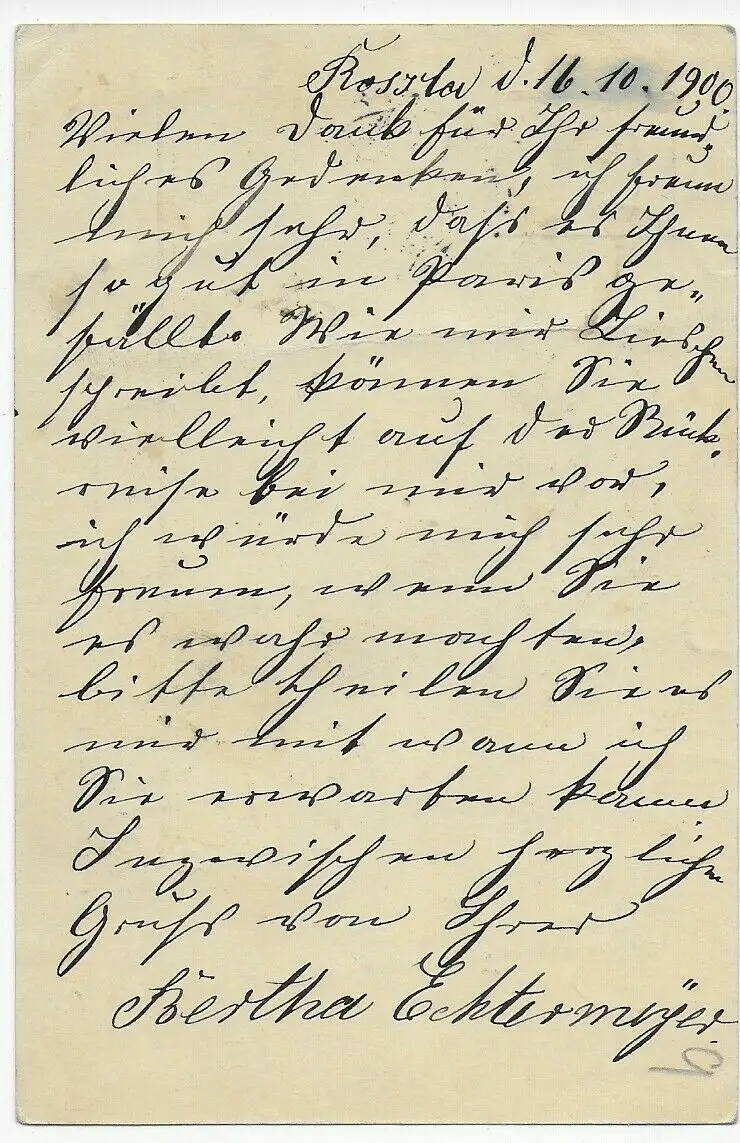 Rossla d. 16. 10. 1900.
Vielen Dank für Ihr freund-
liches Gedenken, ich freue
mich sehr, dass es Ihnen
so gut in Paris ge-
fällt. Wie mir Lieschen
schreibt, können Sie
vielleicht auf der Rück-
reise bei mir vor,
ich würde mich sehr
freuen, wenn Sie
es wahr machten,
bitte theilen Sie es
mir mit wann ich
Sie erwarten kann
Inzwischen herzlichen
Gruss von Ihrer
Bertha Echtermeÿer.